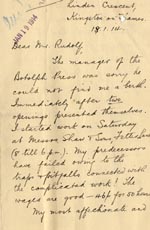 Linden Crescent,
Kingston on Thames
JAN 19 1914
18.1.14.
Dear Mr. Rudolf,
The manager of the
Botolph Press was sorry he
could not find me a berth.
Immediately after two
openings presented themselves.
I started work on Saturday
at Messrs Shaw &
(8 till 6 p.m.). My predecessors
have failed owing to the
traps & pitfalls connected with
the complicated work! The
wages are good — for 50 hours
My most affectionate and